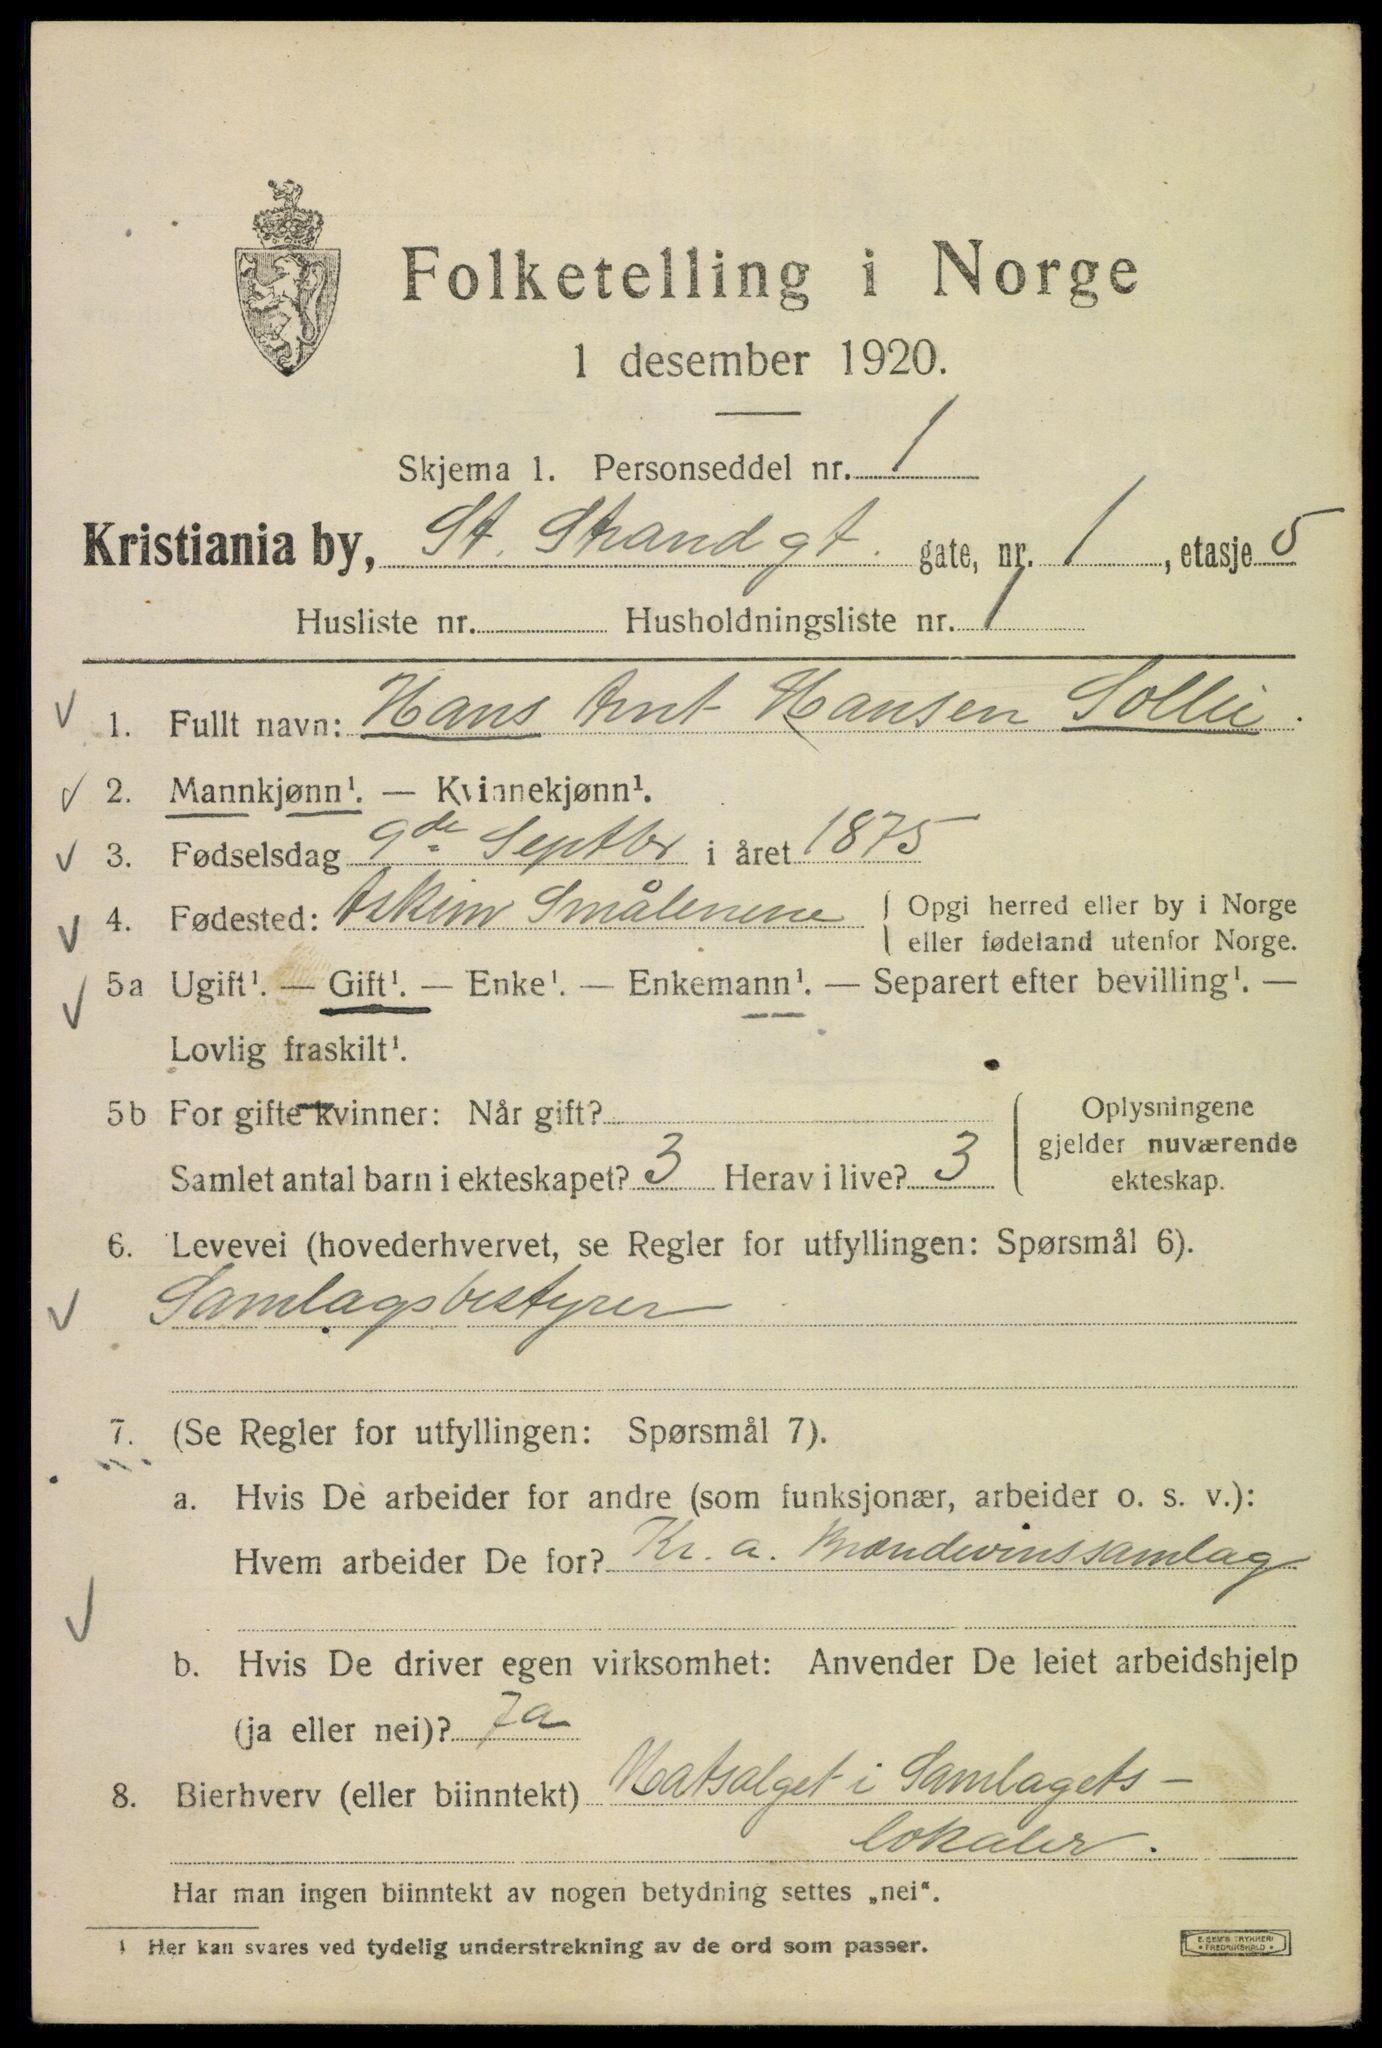 Folketelling i Norge
1 desember 1920.
Skjema 1. Personseddel nr. 1
Kristiania by, St. Strandgt. gate, nr. 1, etasje 5
Husliste nr. Husholdningsliste nr. 1
1. Fullt navn: Hans Arnt Hansen Sollie.
2. Mannkjønn¹. — Kvinnekjønn¹.
3. Fødselsdag 9de Septbr i året 1875
4. Fødested: Askim Smålenene { Opgi herred eller by i Norge
eller fødeland utenfor Norge.
5a Ugift¹. — Gift¹. — Enke¹. — Enkemann¹. — Separert efter bevilling¹. —
Lovlig fraskilt¹.
5b For gifte kvinner: Når gift?
Samlet antal barn i ekteskapet? 3 Herav i live? 3
Oplysningene
gjelder nuværende
ekteskap.
6. Levevei (hovederhvervet, se Regler for utfyllingen: Spørsmål 6).
Samlagsbestyrer
7. (Se Regler for utfyllingen: Spørsmål 7).
a. Hvis De arbeider for andre (som funksjonær, arbeider o. s. v.):
Hvem arbeider De for? Kr. a. Brændevinssamlag
b. Hvis De driver egen virksomhet: Anvender De leiet arbeidshjelp
(ja eller nei)? Ja
8. Bierhverv (eller biinntekt) Matsalget i Samlagets-
lokaler.
Har man ingen biinntekt av nogen betydning settes „nei“.
¹ Her kan svares ved tydelig understrekning av de ord som passer.
E. SEM'S TRYKKERI
• FREDRIKSHALD •